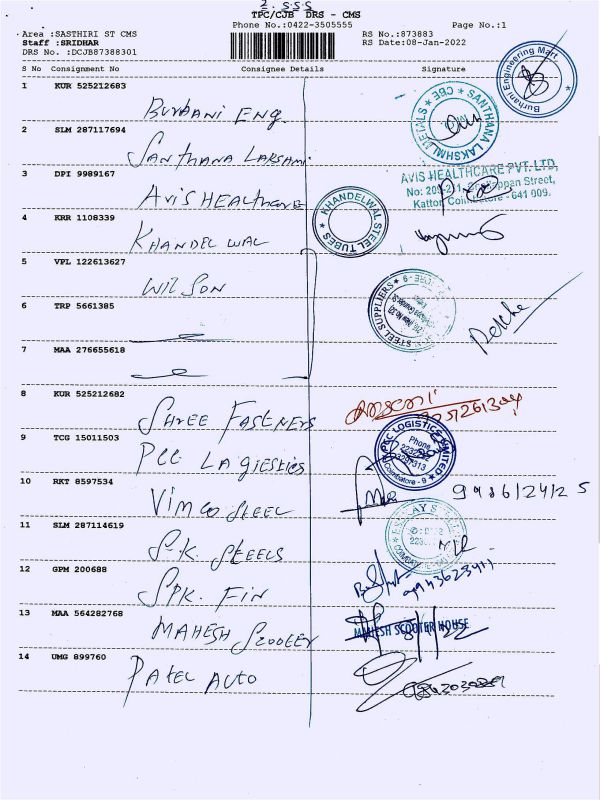 2. SSS
TPC/CJB DRS - CMS
Phone No.:0422-3505555 Page No.:1
Area :SASTHIRI ST CMS RS No.:873883
Staff :SRIDHAR RS Date:08-Jan-2022
DRS No. :DCJB87388301
S No Consignment No Consignee Details Signature
1 KUR 525212683
Burhani Eng
Burhani Engineering Mart
2 SLM 287117694
Santhana Lakshmi
SANTHANA LAKSHMI METALS CBE
3 DPI 9989167
Avis Healthcare
AVIS HEALTHCARE PVT. LTD,
Street,
641 009.
4 KRR 1108339
Khandelwal
KHANDELWAL STEEL TUBES
5 VPL 122613627
Wilson
STEEL SUPPLIERS
6 TRP 5661385
7 MAA 276655618
8 KUR 525212682
Shree Fasteners
9 TCG 15011503
PCC Lagiestics
LOGISTICS LIMITED
Phone
Coimbatore - 9
10 RKT 8597534
Vimco Steel
11 SLM 287114619
S.K. Steels
12 GPM 200688
SPK. Fin
9943623411
13 MAA 564282768
Mahesh Scooter
MAHESH SCOOTER HOUSE
14 UMG 899760
Patel Auto